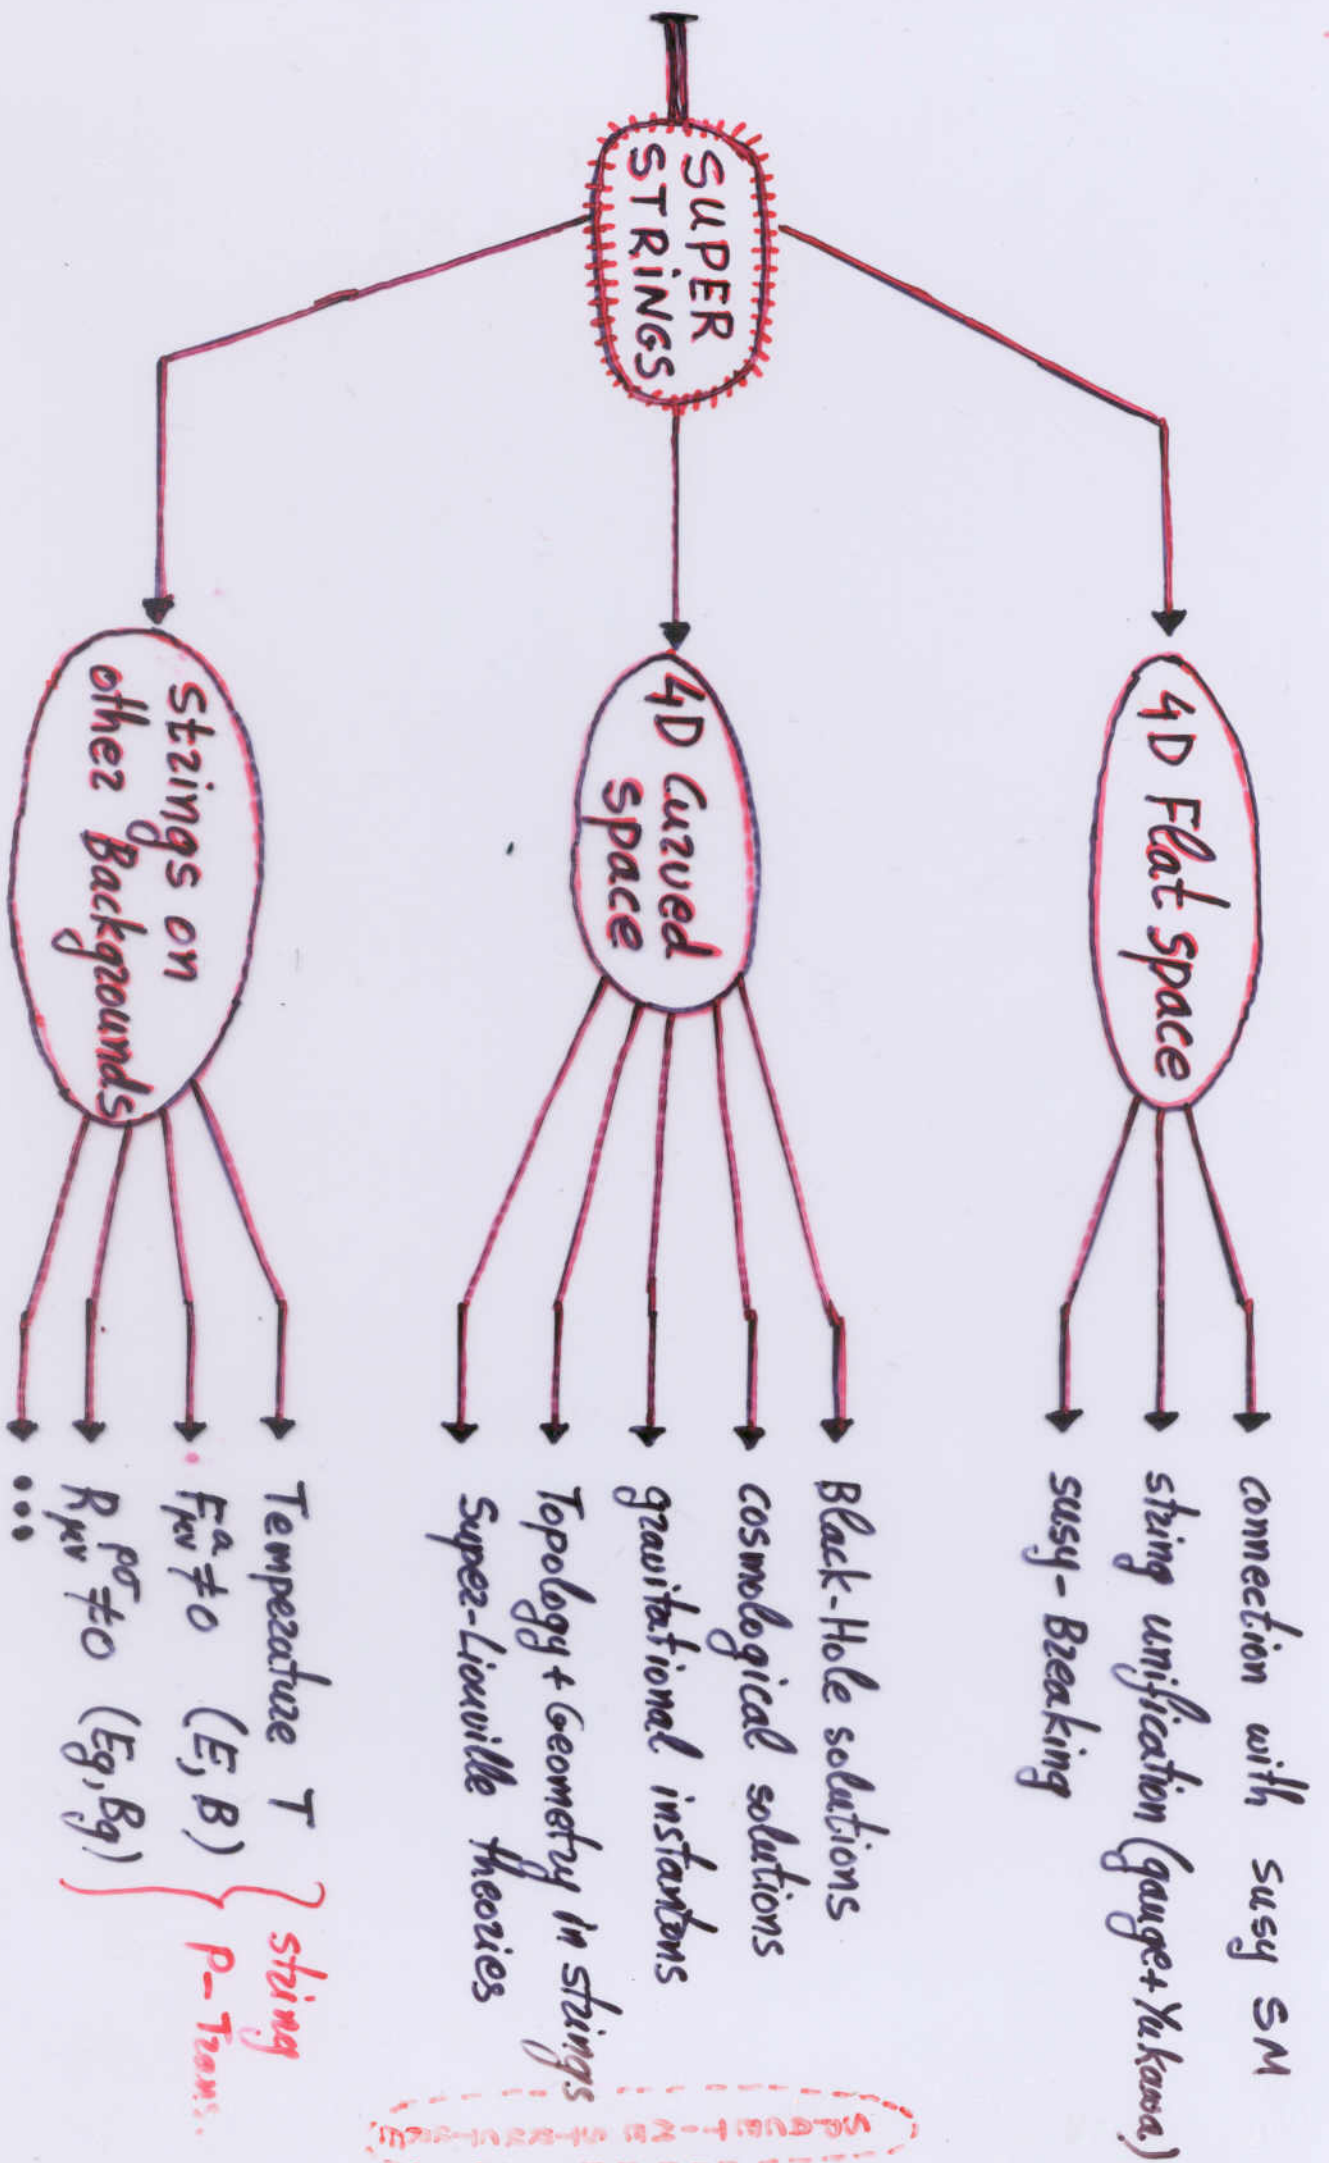 SUPER
STRINGS
4D Flat space
connection with susy SM
string unification (gauge+Yukawa)
susy-Breaking
4D Curved
space
Black-Hole solutions
cosmological solutions
gravitational instantons
Topology + Geometry in strings
Super-Liouville theories
strings on
other Backgrounds
Temperature T
F^a_μν ≠ 0 (E, B)
R_μν^ρσ ≠ 0 (Eg, Bg)
...
string
P-Trans.